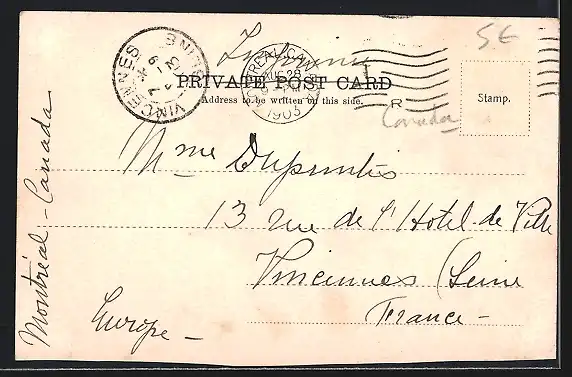 Imprimé
5€
PRIVATE POST CARD
Address to be written on this side.
Stamp.
VINCENNES
SEINE
MONTREAL, CANADA
AUG 28
1903
R
Canada
Mme Dupuntis
13 rue de l'Hotel de Ville
Vincennes (Seine
France -
Europe -
Montréal - Canada